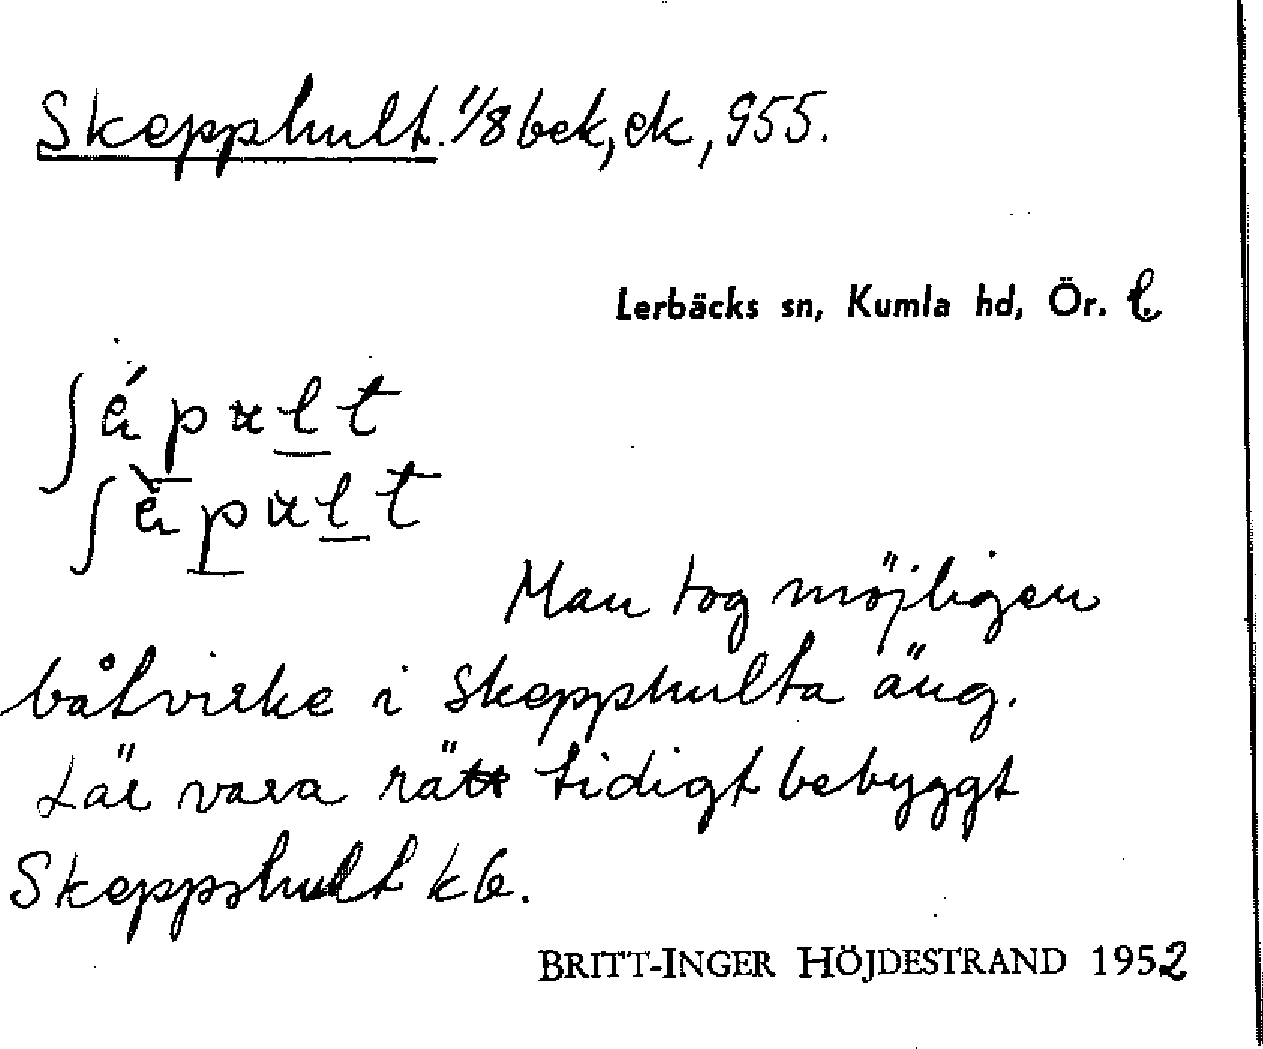 Skepphult. 1/8 bek, ek, 955.
Lerbäcks sn, Kumla hd, Ör. l.
Man tog möjligen
båtvirke i Skepphulta äng.
Lär vara rätt tidigt bebyggt
Skeppshult kb.
BRITT-INGER HÖJDESTRAND 1952